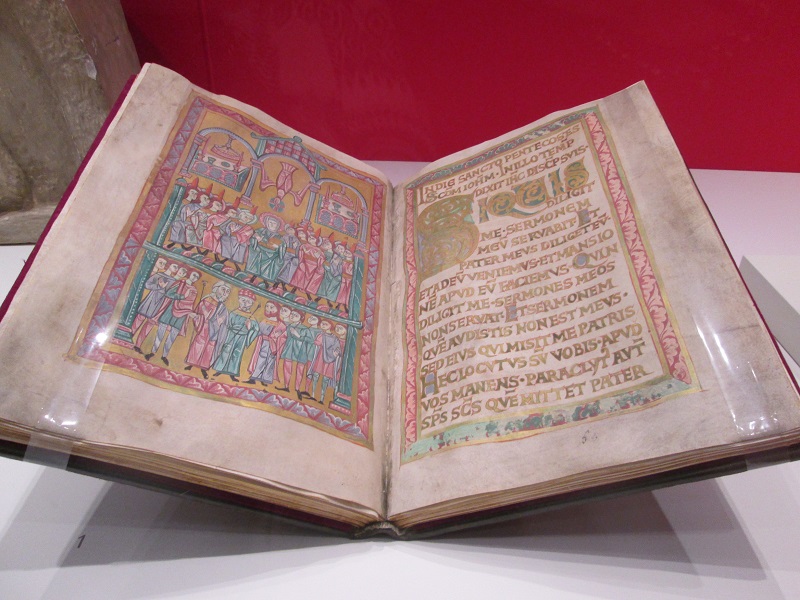 IN DIE SANCTO PENTECOSTES
SCDM IOHM · IN ILLO TEMP
DIXIT IHC DISCP SVIS ·
SI QVIS
DILIGIT
ME · SERMONEM
MEV SERVABIT · ET
PATER MEVS DILIGET EV ·
ET AD EV VENIEMVS · ET MANSIO
NE APVD EV FACIEMVS · QVI N
DILIGIT ME · SERMONES MEOS
NON SERVAT · ET SERMONEM
QVE AVDISTIS NON EST MEVS ·
SED EIVS QVI MISIT ME PATRIS
HEC LOCVTVS SV VOBIS · APVD
VOS MANENS · PARACLYT AVT
SPS SCS QVE MITTET PATER
1